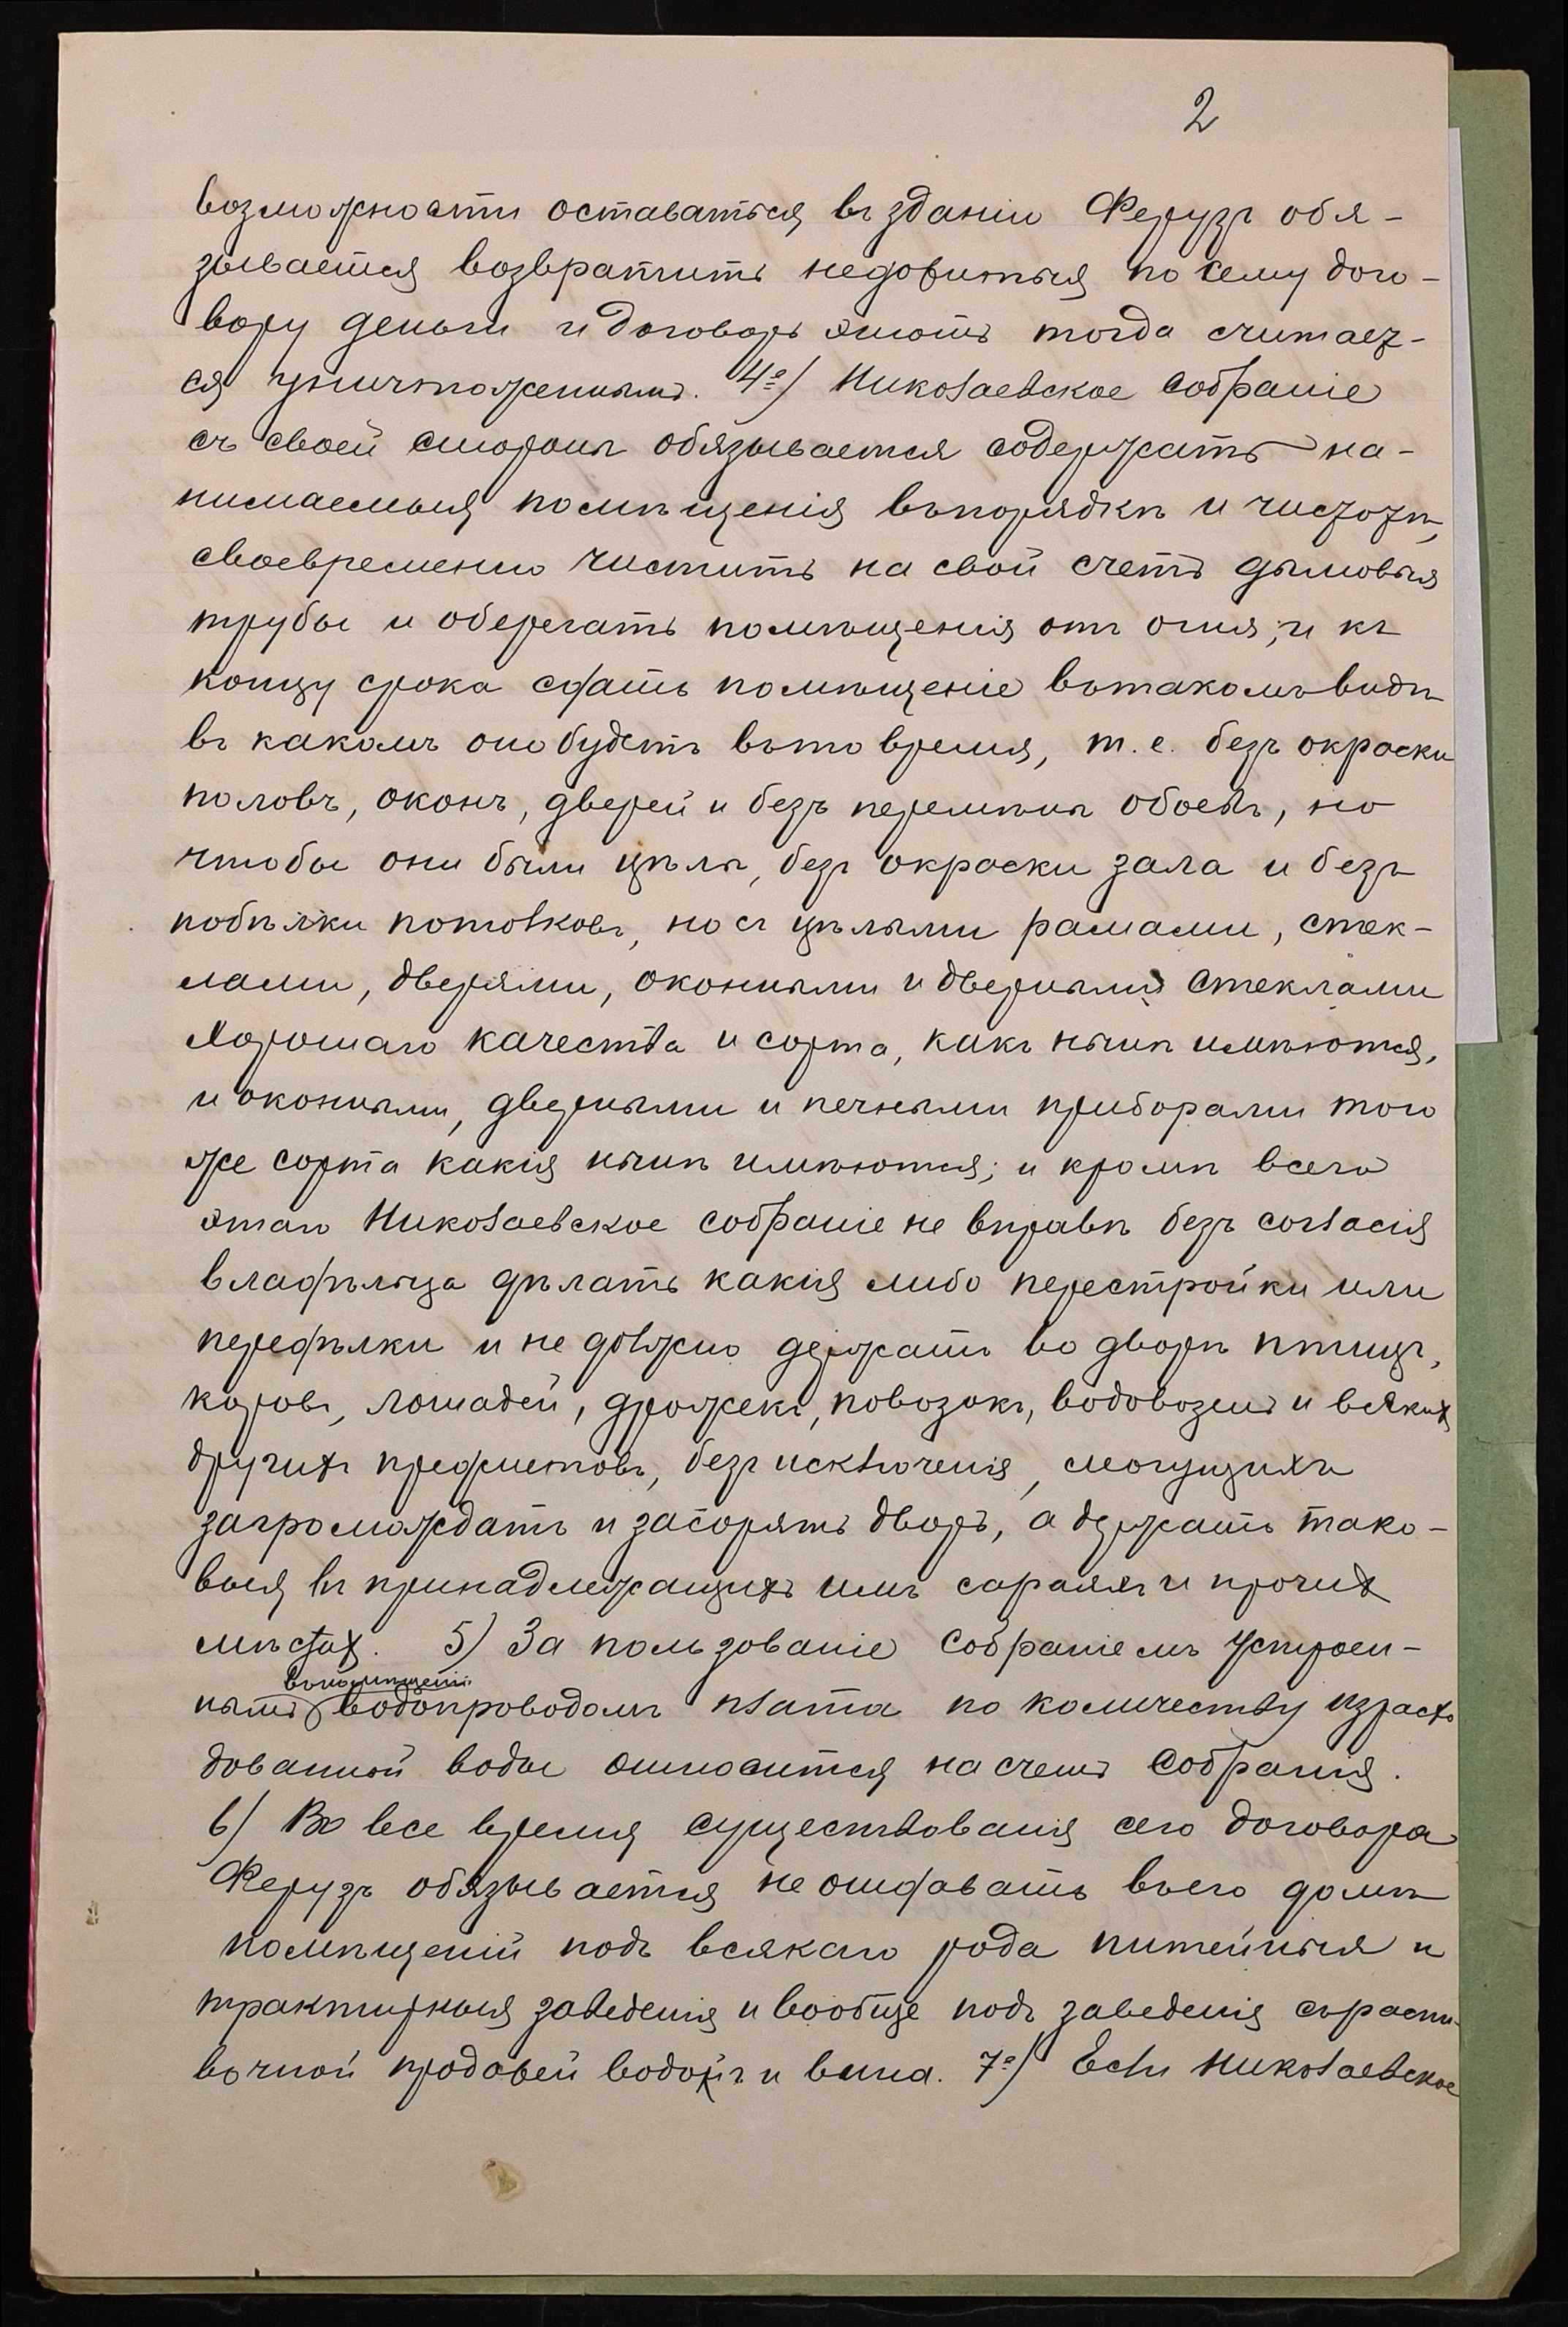 2
возможности оставаться въ зданіи Ферузъ обя-
зывается возвратить недожитыя по сему дого-
вору деньги и договоръ этотъ тогда считает-
ся уничтоженнымъ. 4º) Николаевское Собраніе
съ своей стороны обязывается содержать на-
нимаемыя помѣщенія въ порядкѣ и чистотѣ,
своевременно чистить на свой счетъ дымовыя
трубы и оберегать помѣщенія отъ огня, и къ
концу срока сдать помѣщеніе въ такомъ видѣ
въ какомъ оно будетъ въ то время, т. е. безъ окраски
половъ, оконъ, дверей и безъ перемѣны обоевъ, но
чтобы они были цѣлы, безъ окраски зала и безъ
побѣлки потолковъ, но съ цѣлыми рамами, стек-
лами, дверями, оконными и дверными стеклами
хорошаго качества и сорта, какъ нынѣ имѣются,
и оконными, дверными и печными приборами того
же сорта какія нынѣ имѣются; и кромѣ всего
этаго Николаевское собраніе не вправѣ безъ согласія
владѣльца дѣлать какія либо перестройки или
передѣлки и не должно держать во дворѣ птицъ,
коровъ, лошадей, дрожекъ, повозокъ, водовозки и всякихъ
другихъ предметовъ, безъ исключенія, могущихъ
загромождать и засорять дворъ, а держать тако-
выя въ принадлежащихъ имъ сараяхъ и прочих
мѣстах. 5) За пользованіе Собраніемъ устроен-
въ помѣщеніи
нымъ водопроводомъ плата по количеству израсхо
дованной воды относится на счетъ Собранія.
6) Во все время существованія сего договора
Ферузъ обязывается не отдавать въ его домѣ
помѣщеній подъ всякаго рода питейныя и
трактирныя заведенія и вообще подъ заведенія съ распи-
вочной продажей водокъ и вина. 7º) Если Николаевское